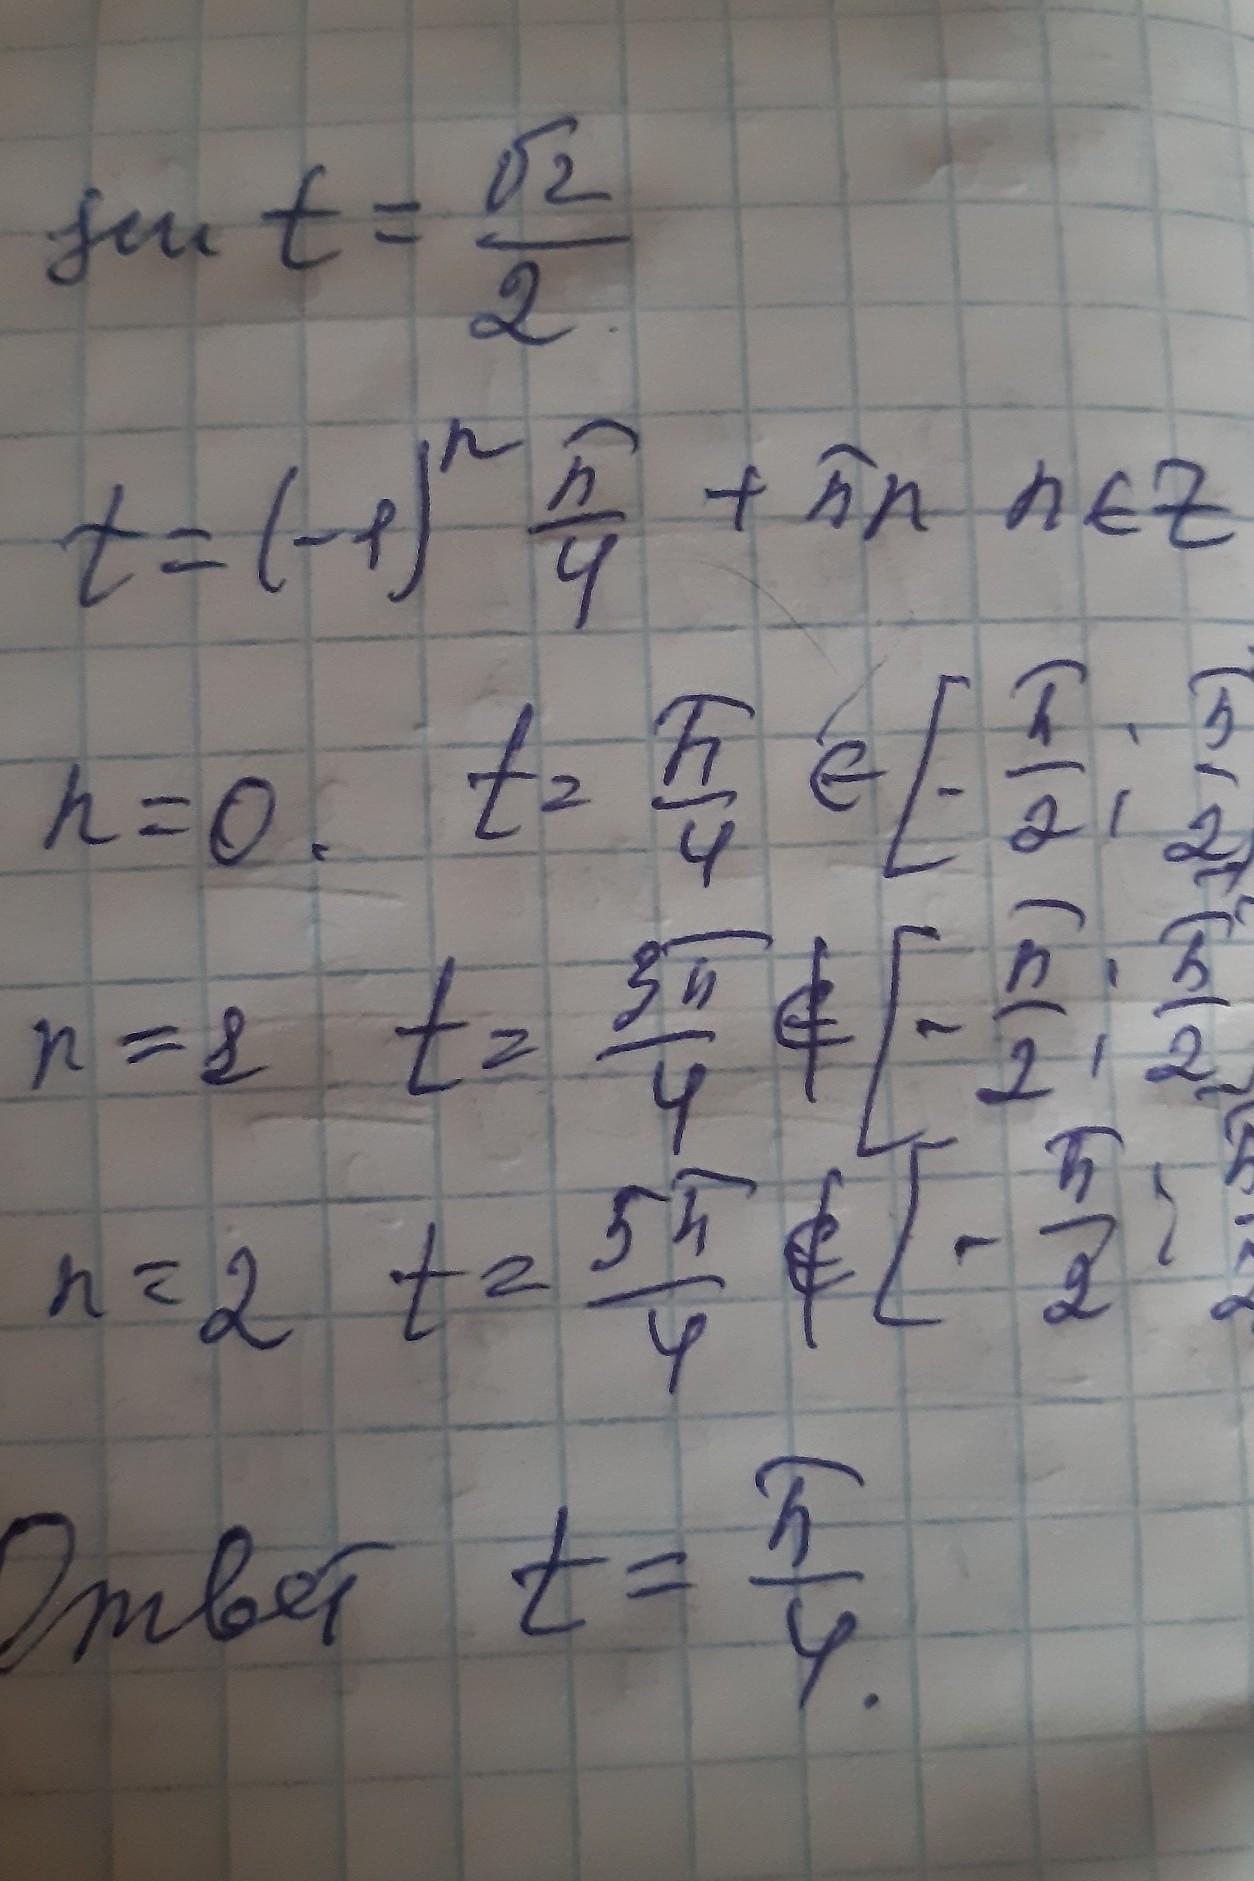 sin t = √2/2
t = (-1)^n π/4 + πn n ∈ Z
n = 0. t = π/4 ∈ [-π/2; π/2]
n = 1 t = 3π/4 ∉ [-π/2; π/2]
n = 2 t = 5π/4 ∉ [-π/2; π/2
Ответ t = π/4.